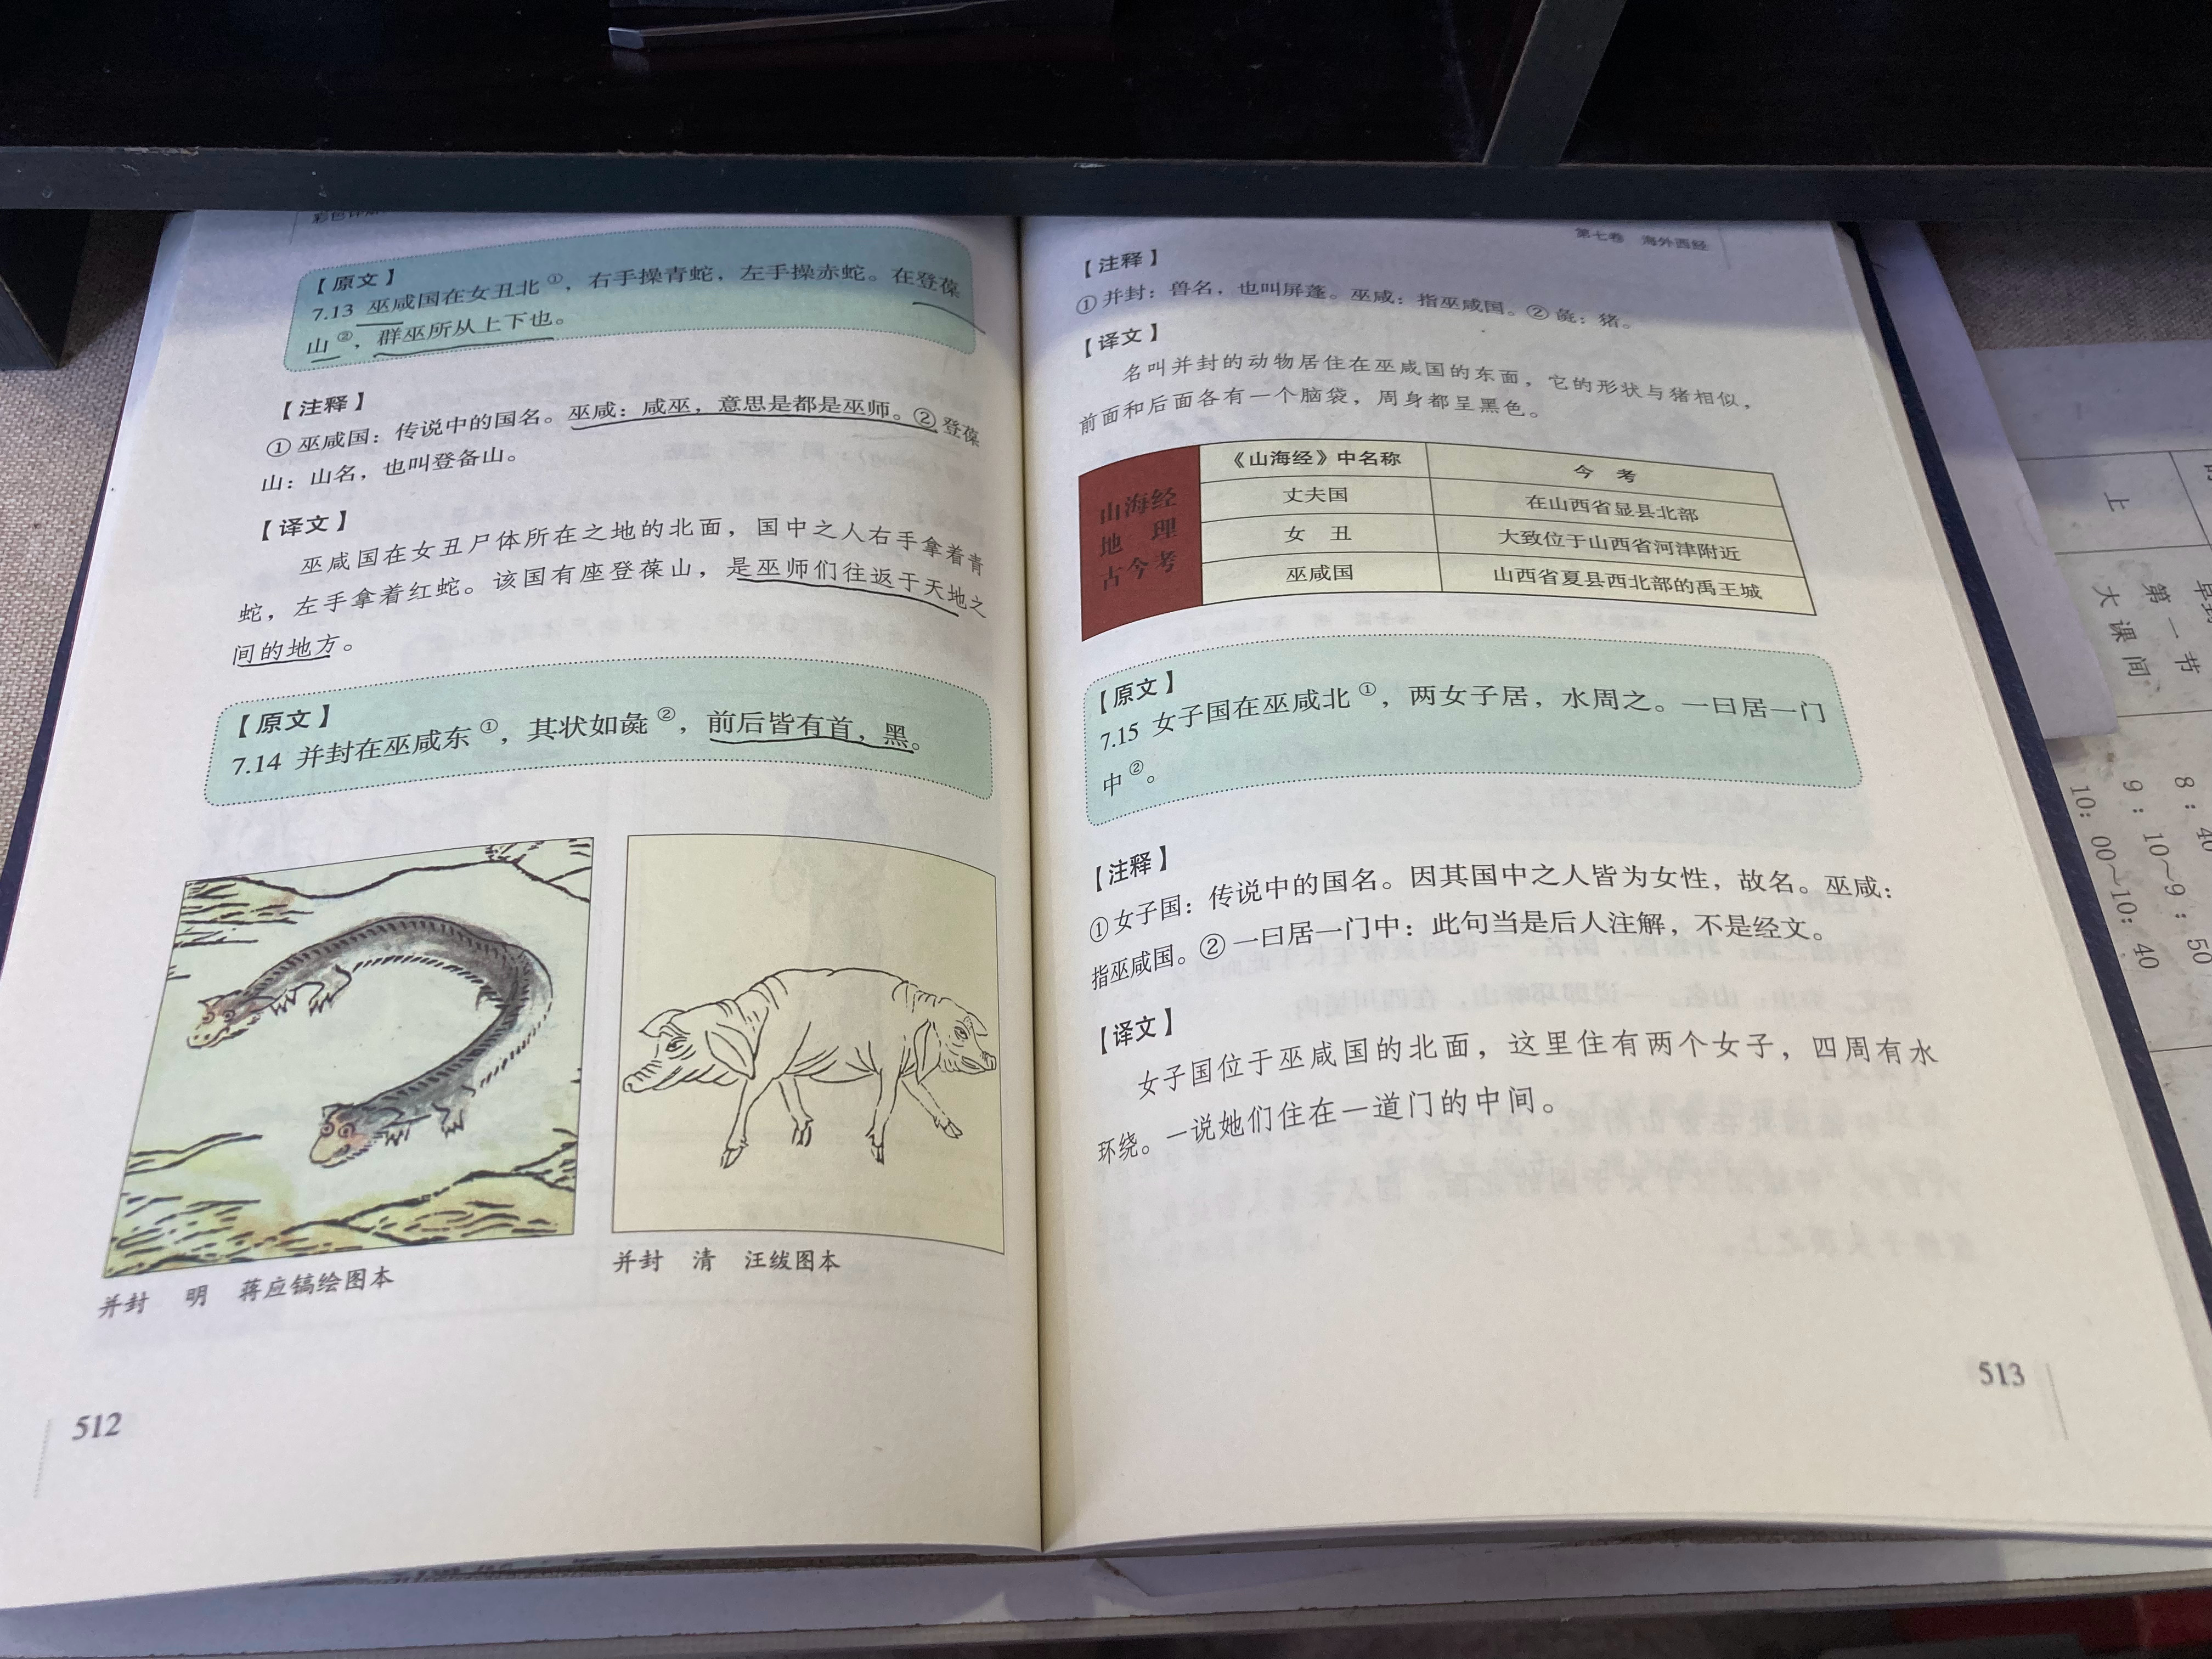 【原文】
7.13 巫咸国在女丑北①，右手操青蛇，左手操赤蛇。在登葆
山②，群巫所从上下也。
【注释】
①巫咸国：传说中的国名。巫咸：咸巫，意思是都是巫师。②登葆
山：山名，也叫登备山。
【译文】
巫咸国在女丑尸体所在之地的北面，国中之人右手拿着青
蛇，左手拿着红蛇。该国有座登葆山，是巫师们往返于天地之
间的地方。
【原文】
7.14 并封在巫咸东①，其状如彘②，前后皆有首，黑。
并封 明 蒋应镐绘图本
并封 清 汪绂图本
512
第七卷 海外西经
【注释】
①并封：兽名，也叫屏蓬。巫咸：指巫咸国。②彘：猪。
【译文】
名叫并封的动物居住在巫咸国的东面，它的形状与猪相似，
前面和后面各有一个脑袋，周身都呈黑色。
山海经
地理
古今考
《山海经》中名称 今考
丈夫国 在山西省显县北部
女丑 大致位于山西省河津附近
巫咸国 山西省夏县西北部的禹王城
【原文】
7.15 女子国在巫咸北①，两女子居，水周之。一曰居一门
中②。
【注释】
①女子国：传说中的国名。因其国中之人皆为女性，故名。巫咸：
指巫咸国。②一曰居一门中：此句当是后人注解，不是经文。
【译文】
女子国位于巫咸国的北面，这里住有两个女子，四周有水
环绕。一说她们住在一道门的中间。
513
上
第一节
大课间
8：40
9：10～9：50
10：00～10：40